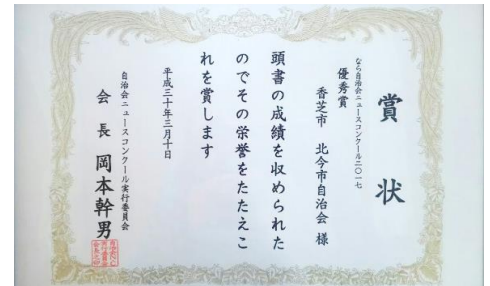 賞状
なら自治会ニュースコンクール二〇一七
優秀賞
香芝市 北今市自治会 様
頭書の成績を収められた
のでその栄誉をたたえこ
れを賞します
平成三十年三月十日
自治会ニュースコンクール実行委員会
会長 岡本幹男